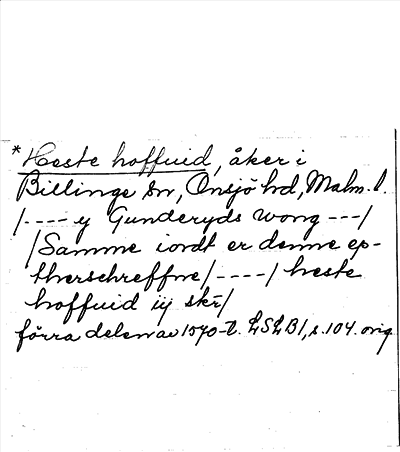 *Heste hoffuid, åker i
Billinge sn, Onsjö hd, Malm. l.
/---- y Gunderyds wong ---/
/Samme iordt er denne ep-
therschreffne/----/ heste
hoffuid iij skr/
förra delen av 1570-t. LSLB1, s. 104. orig